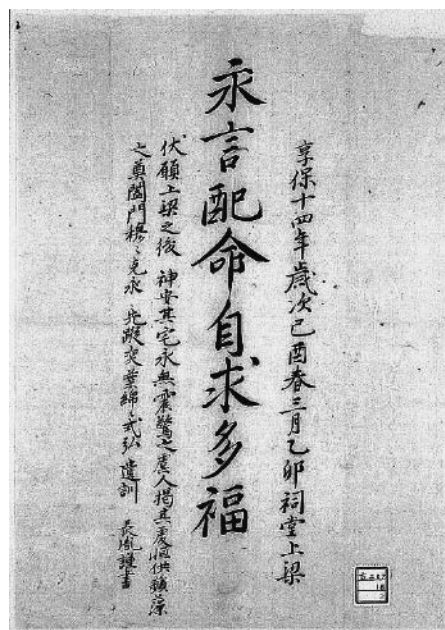 享保十四年歳次己酉春三月乙卯祠堂上梁
永言配命自求多福
伏願上梁之後 神安其宅永無震驚之虞人揭其虔恒供蘋藻
之奠闔門穆〻克永 奕葉綿〻式弘 遺訓 長胤謹書